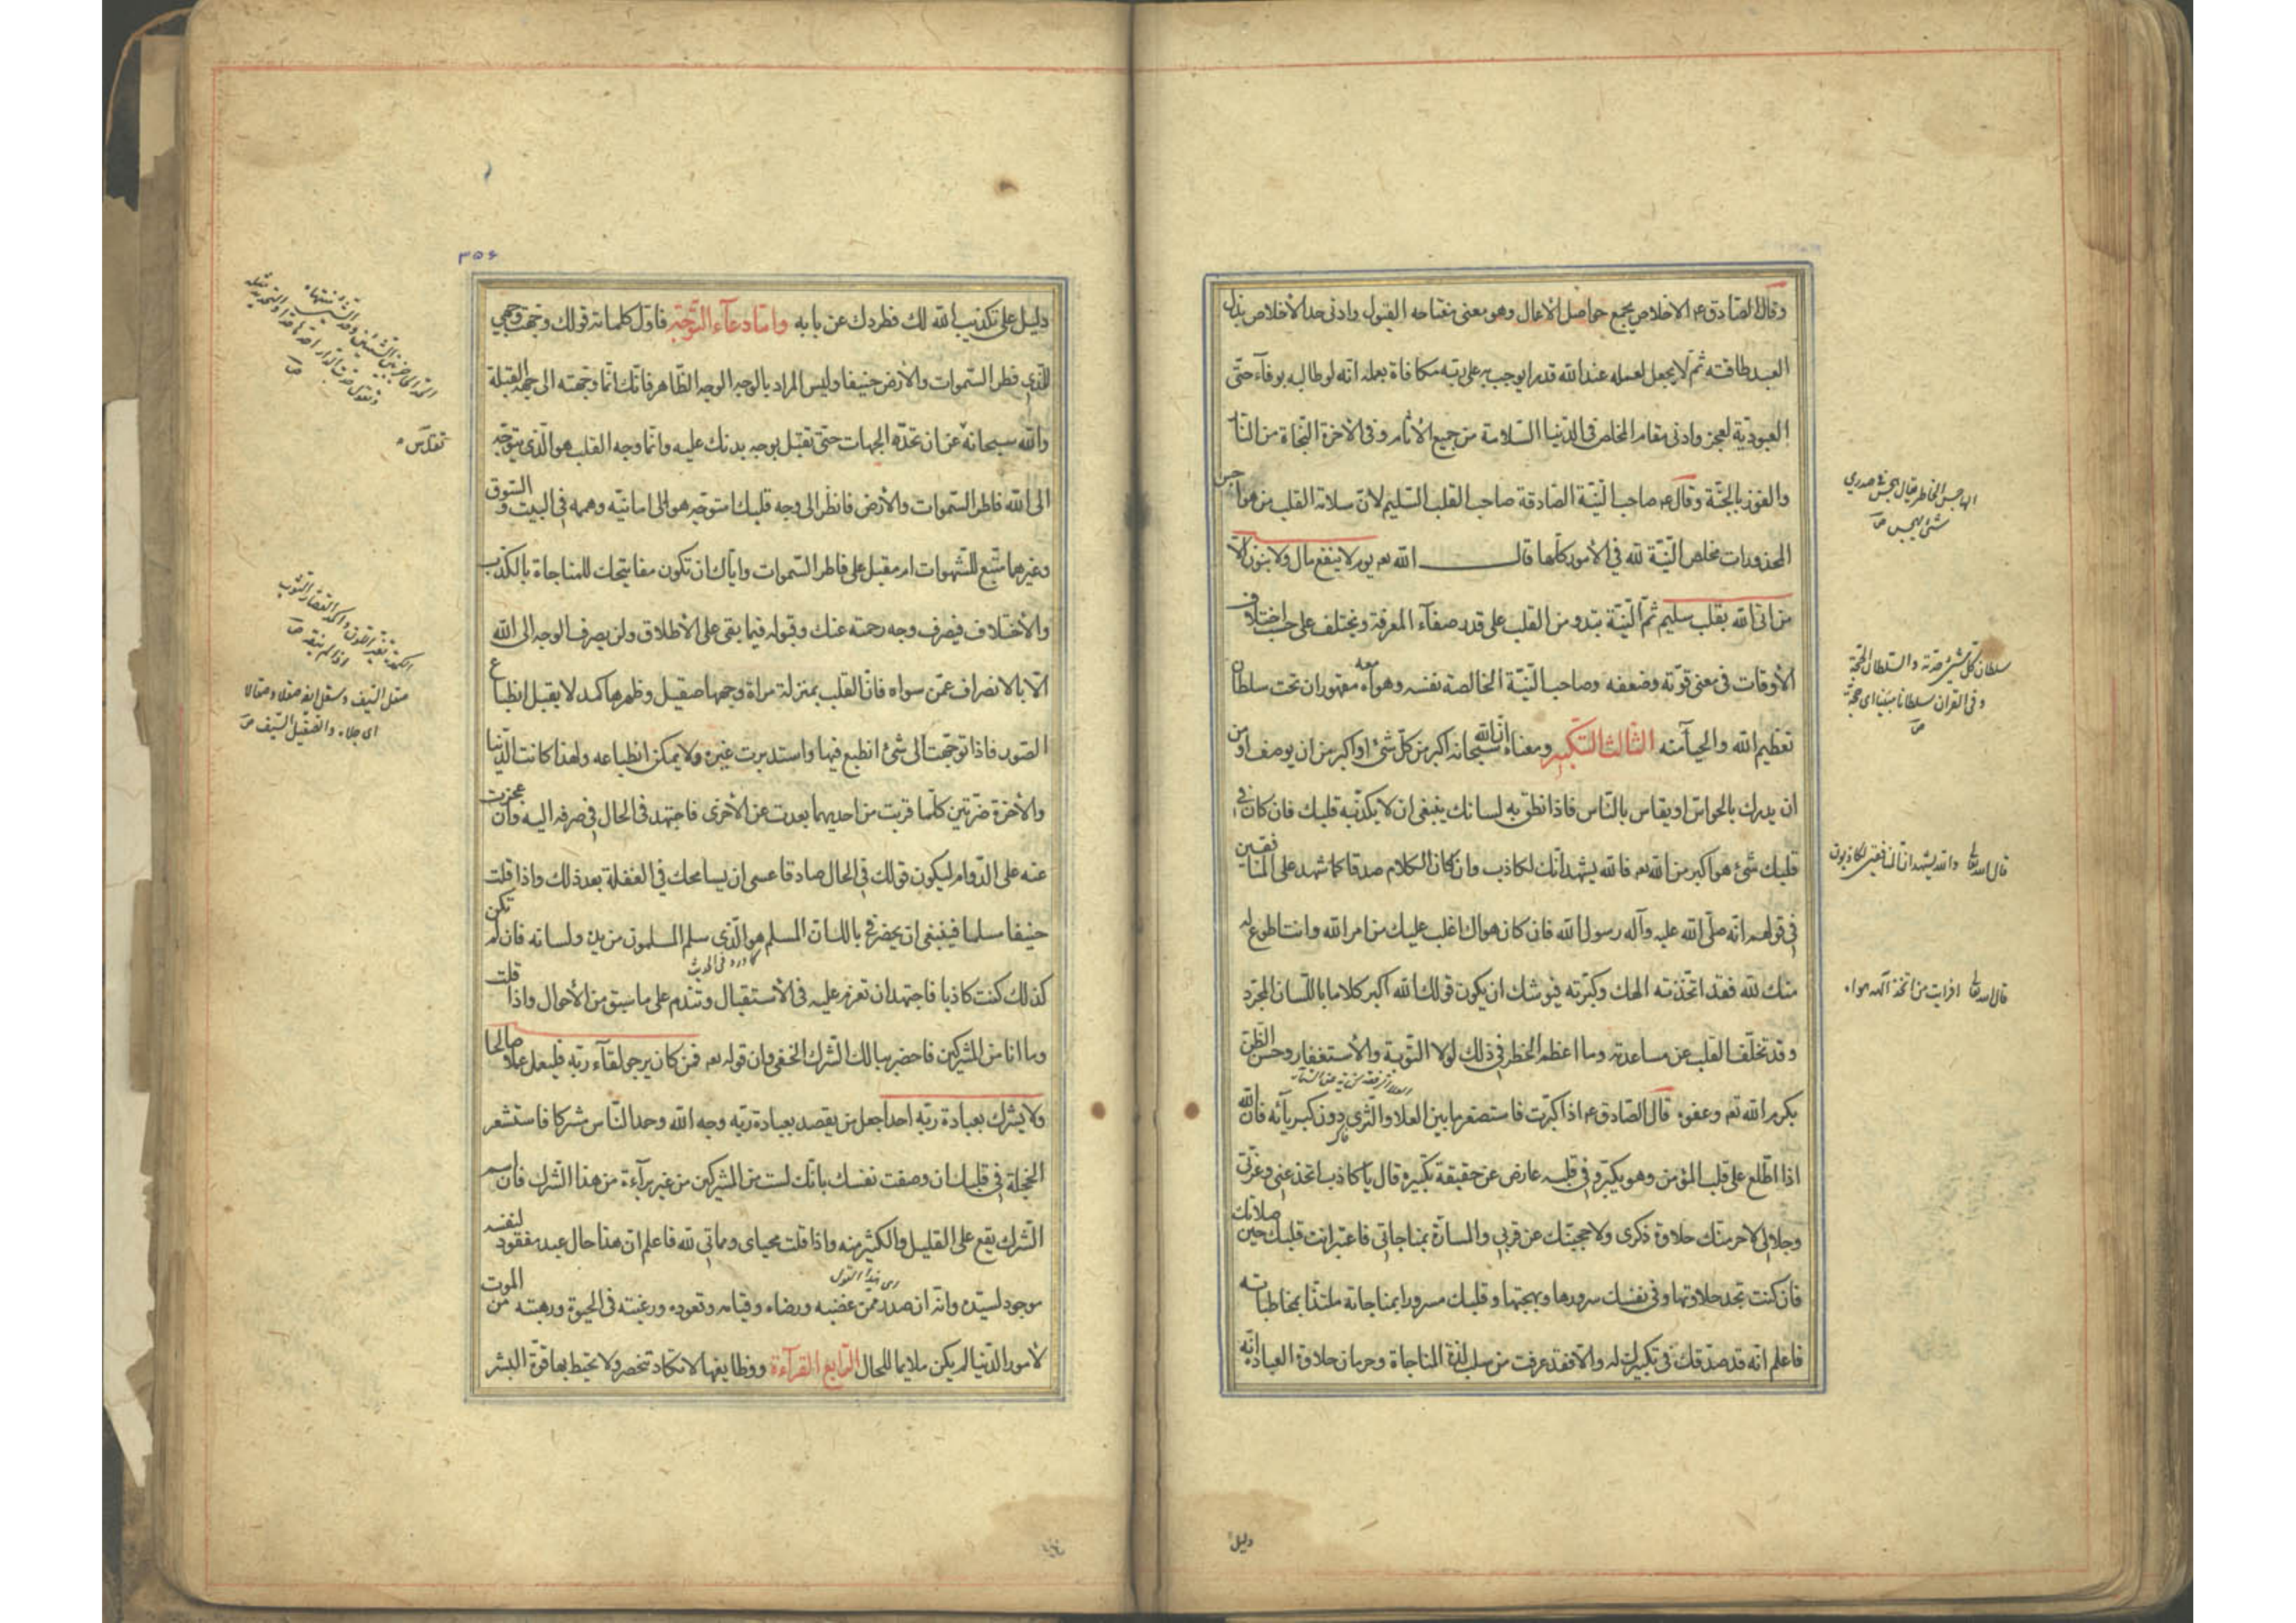 وقال الصادق ع م الاخلاص يجمع حواصل الأعمال وهو معنى مفتاحه القبول وادنى حد الأخلاص بذل
العبد طاقته ثم لا يجعل لعمله عند الله قدرا يوجب به على ربه مكافاة بعلمه انه لو طالبه بوفاء حق
العبودية لعجز وادنى مقام المخلص فى الدنيا السلامة من جميع الأثام وفى الأخرة النجاة من النار
والفوز بالجنة وقال ع م صاحب النية الصادقة صاحب القلب السليم لأن سلامة القلب من هواجس
المحذورات مخلص النية لله في الأمور كلها قال الله تع يوم لا ينفع مال ولا بنون الا
من اتى الله بقلب سليم ثم النية تبدو من القلب على قدر صفآء المعرفة ويختلف على حسب اختلاف
الأوقات فى معنى قوته وضعفه وصاحب النية الخالصة نفسه وهواه معه مقهوران تحت سلطان
تعظيم الله والحيآء منه الثالث التكبير ومعناه ان الله سبحانه اكبر من كل شئ او اكبر من ان يوصف او من
ان يدرك بالحواس او يقاس بالناس فاذا نطق به لسانك ينبغى ان لا يكذبه قلبك فان كان فى
قلبك شئ هو اكبر من الله تع فالله يشهد انك لكاذب وان كان الكلام صدقا كما شهد على المنافقين
فى قولهم انه صلى الله عليه وآله رسول الله فان كان هواك اغلب عليك من امر الله وانت اطوع له
منك لله فقد اتخذته الهك وكبرته فيوشك ان يكون قولك الله اكبر كلاما باللسان المجرد
وقد تخلف القلب عن مساعدته وما اعظم الخطر فى ذلك لولا التوبة والأستغفار وحسن الظن
بكرم الله تع وعفوه قال الصادق ع م اذا كبرت فاستصغر ما بين العلا والثرى دون كبريآئه فان الله
اذا اطلع على قلب المؤمن وهو يكبر وفى قلبه عارض عن حقيقة تكبيره قال يا كاذب اتخدعنى وعزتى
وجلالى لاحرمنك حلاوة ذكرى ولاحجبنك عن قربى والمسارة بمناجاتى فاعتبر انت قلبك حين صلاتك
فان كنت تجد حلاوتها وفى نفسك سرورها وبهجتها وقلبك مسرورا بمناجاته ملتذا بمخاطباته
فاعلم انه قد صدقك فى تكبيرك له والا فقد عرفت من سلب لذة المناجاة وحرمان حلاوة العبادة انه
دليل
الهاجس الخاطر يقال هجس فى صدرى
شئ يهجس ص
سلطان كل شئ حدته والسلطان الحجة
وفى القران سلطانا مبينا اى حجة
ص
قال الله تعالى والله يشهد ان المنافقين لكاذبون
قال الله تعالى افرايت من اتخذ آلهه هواه
٣٥٦
دليل على تكذيب الله لك فطردك عن بابه واما دعآء التوجه فاول كلماته قولك وجهت وجهي
للذى فطر السموات والأرض حنيفا وليس المراد بالوجه الوجه الظاهر فانك انما وجهته الى جهة القبلة
والله سبحانه عن ان تحده الجهات حتى تقبل بوجه بدنك عليه وانما وجه القلب هو الذى يتوجه
الى الله فاطر السموات والأرض فانظر الى وجه قلبك امتوجه هو الى امانيه وهمه فى البيت والسوق
وغيرهما متبع للشهوات ام مقبل على فاطر السموات واياك ان تكون مفاتيحك للمناجاة بالكذب
والأختلاف فيصرف وجه رحمته عنك وقبوله فيما بقى على الأطلاق ولن يصرف الوجه الى الله
الا بالانصراف عمن سواه فان القلب بمنزلة مراة وجهها صقيل وظهرها كمد لا يقبل انطباع
الصور فاذا توجهت الى شئ انطبع فيها واستدبرت غيره ولا يمكن انطباعه ولهذا كانت الدنيا
والأخرة ضرتين كلما قربت من احديهما بعدت عن الأخرى فاجتهد فى الحال فى صرفه اليه وان عجزت
عنه على الدوام ليكون قولك فى الحال صادقا عسى ان يسامحك فى الغفلة بعد ذلك واذا قلت
حنيفا مسلما فينبغى ان يحضر فى بالك ان المسلم هو الذى سلم المسلمون من يده ولسانه فان لم تكن
كما ورد فى الحديث
كذلك كنت كاذبا فاجتهد ان تعزم عليه فى الأستقبال وتندم على ما سبق من الأحوال واذا قلت
وما انا من المشركين فاحضر ببالك الشرك الخفى وان قوله تع فمن كان يرجو لقآء ربه فليعمل عملا صالحا
ولا يشرك بعبادة ربه احدا جعل من يقصد بعبادة ربه وجه الله وحمد الناس مشركا فاستشعر
الخجلة فى قلبك ان وصفت نفسك بانك لست من المشركين من غير برآءة من هذا الشرك فان اسم
الشرك يقع على القليل والكثير منه واذا قلت محياى ومماتى لله فاعلم ان هذا حال عبد مفقود لنفسه
موجود لسيده وانه ان صدر ممن غضبه ورضاه وقيامه وقعوده ورغبته فى الحيوة ورهبته من الموت
لأمور الدنيا لم يكن ملايما للحال الرابع القرآءة ووظايفها لا تكاد تنحصر ولا تحيط بها قوة البشر
تقدس ه
صقل السيف وسقل ايضه صقلا وصقالا
اى جلاه والصقيل السيف ص